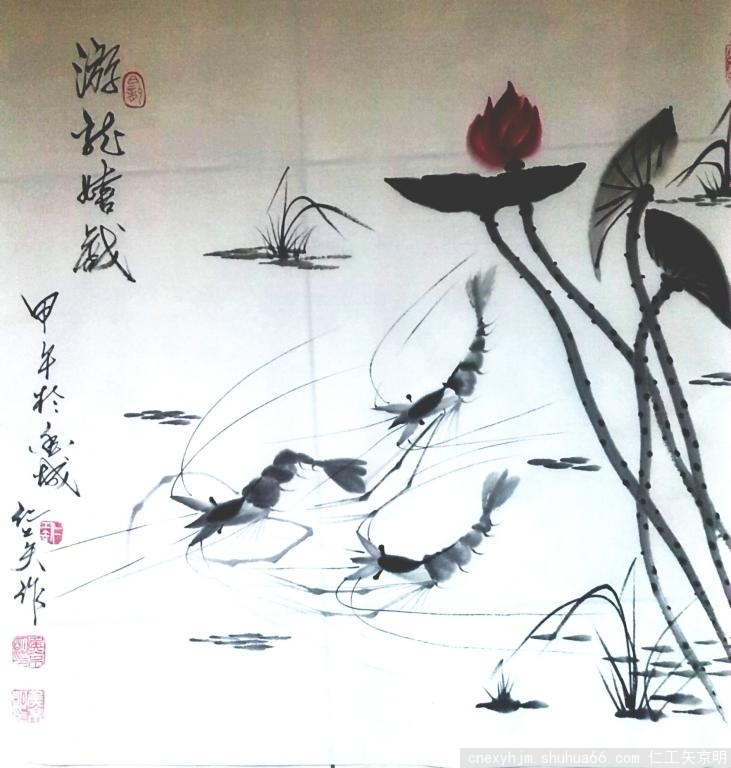 游龙嬉戏
甲午于金城
仁工矢作
cnexyhjm.shuhua66.com 仁工矢京明